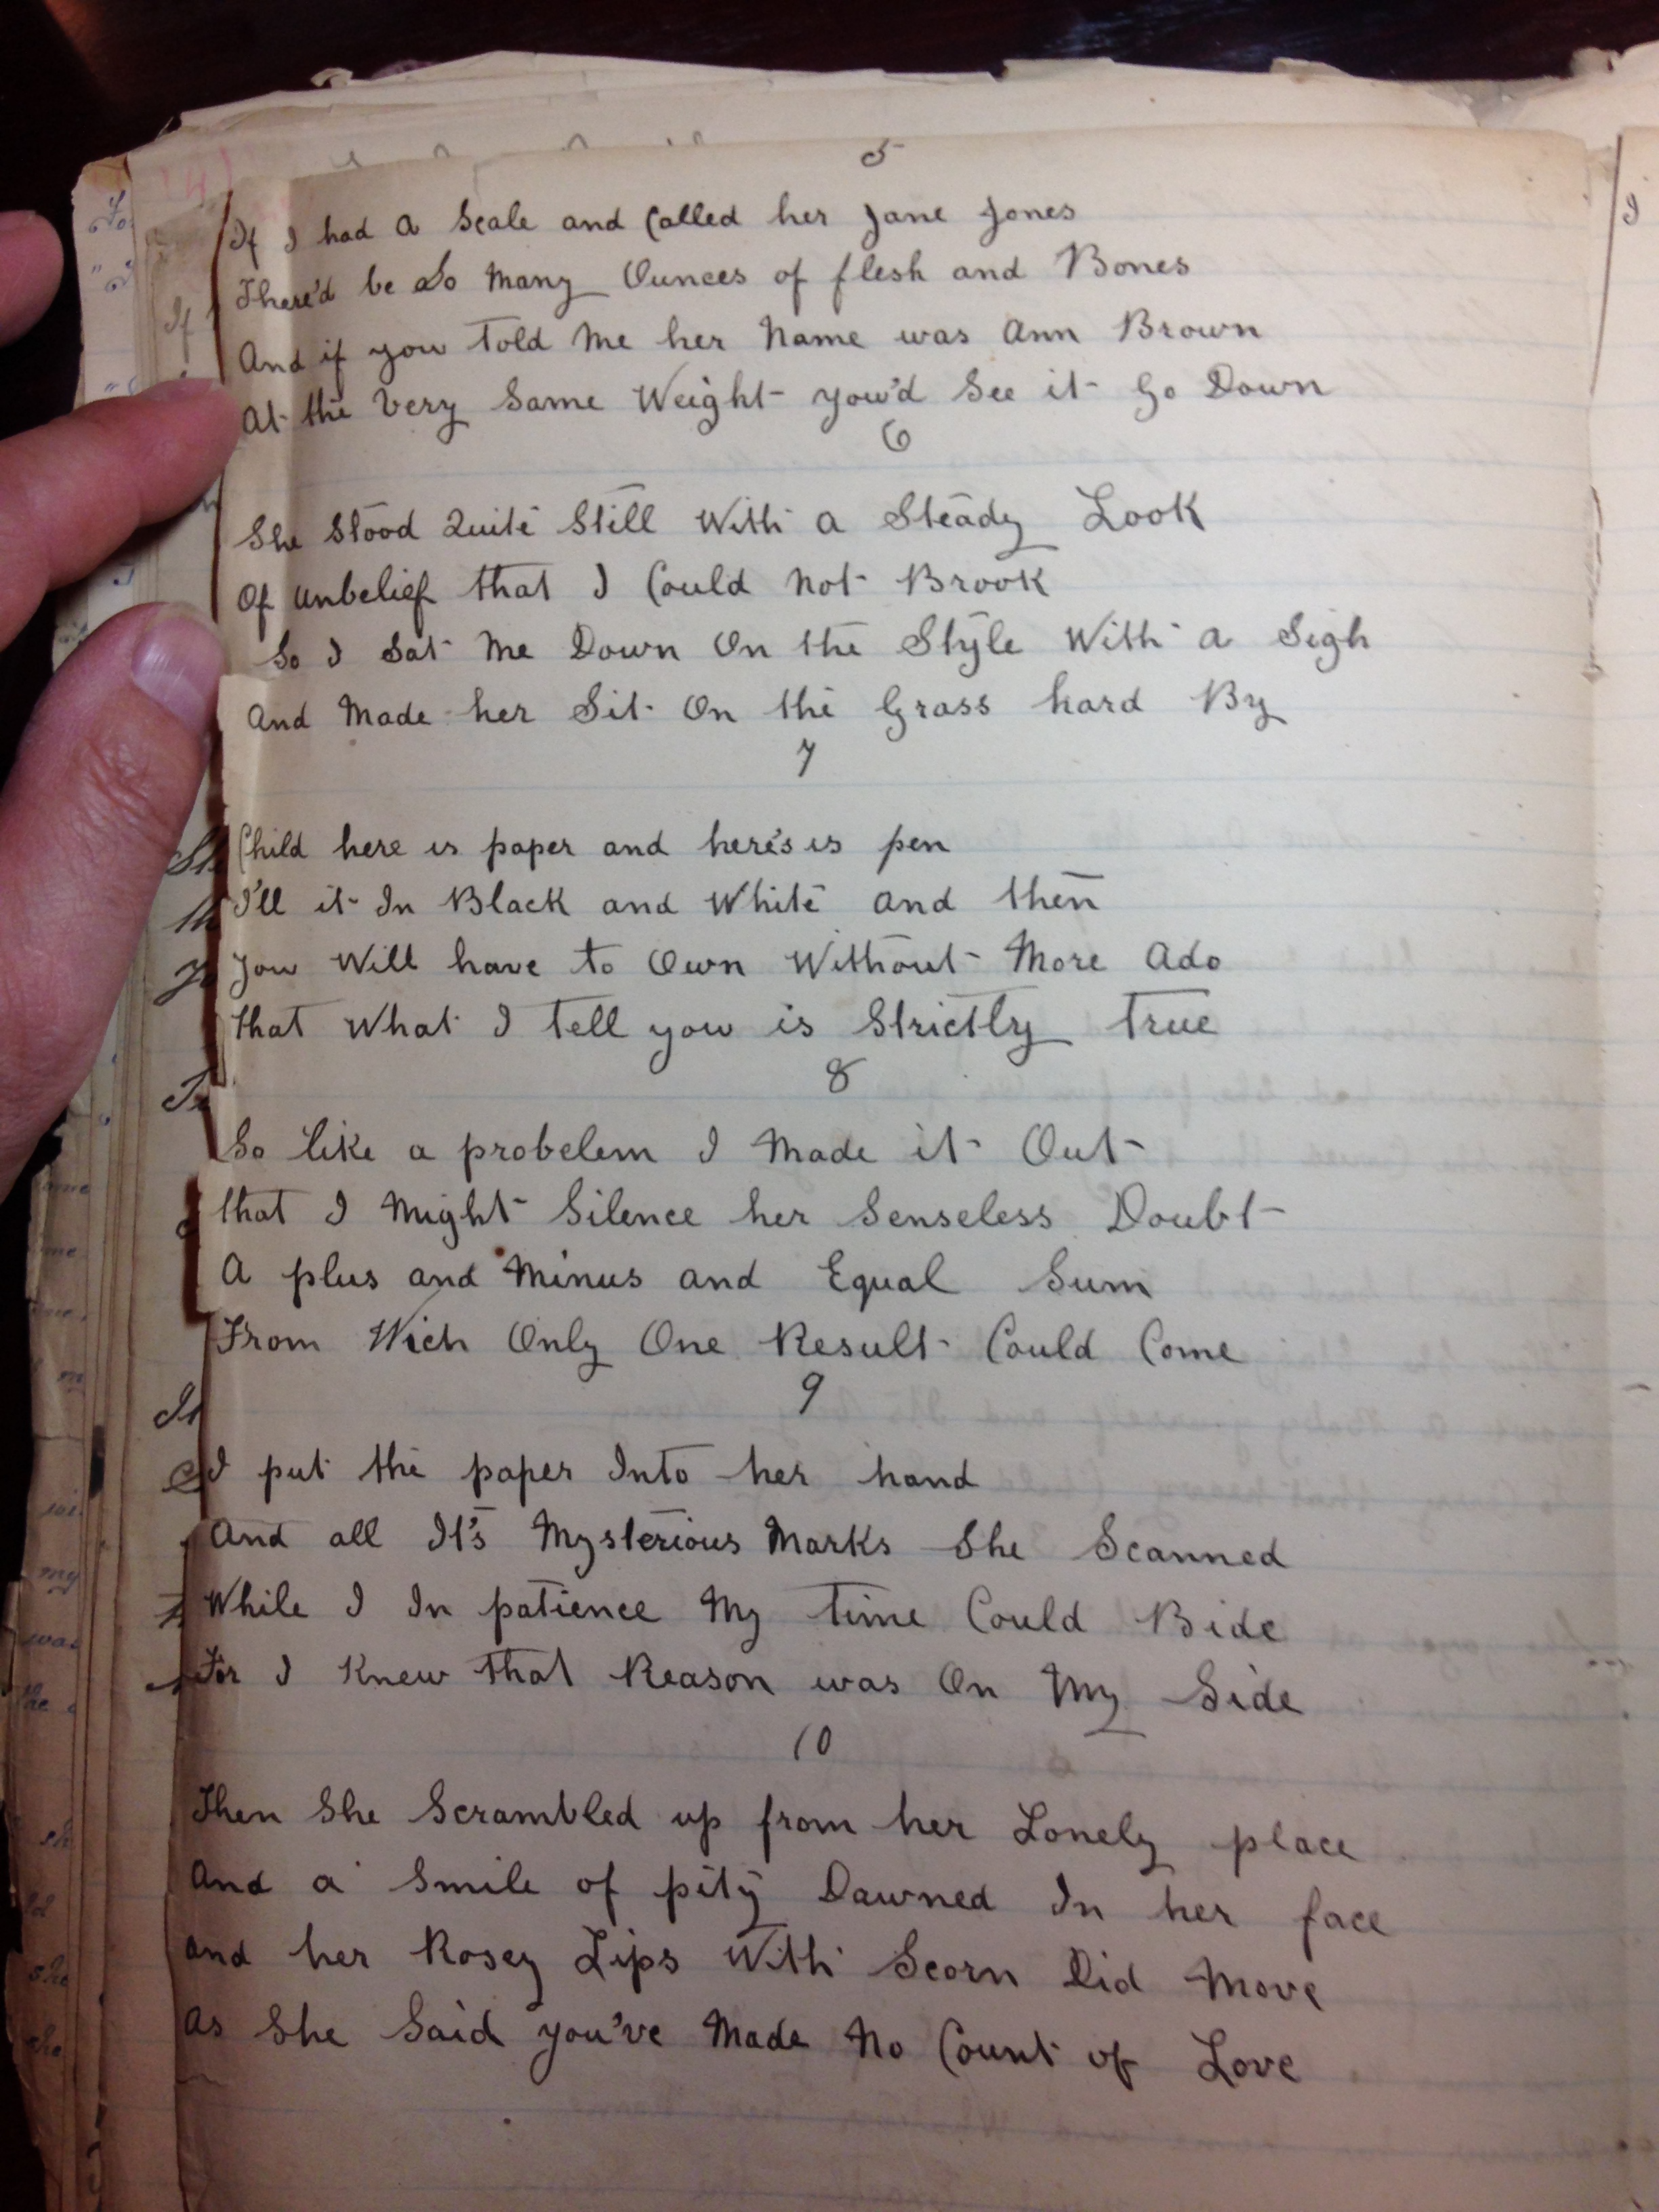 5
If I had a Scale and Called her Jane Jones
There'd be So Many Ounces of flesh and Bones
And if you Told Me her Name was Ann Brown
At the Very Same Weight you'd See it Go Down
6
She Stood Quite Still With a Steady Look
Of unbelief that I Could Not Brook
So I Sat Me Down On the Style With a Sigh
And Made her Sit On the Grass hard By
7
Child here is paper and here's is pen
I'll it In Black and White and then
you Will have to Own Without More Ado
that What I Tell you is Strictly True
8
So Like a probelem I Made it Out
that I Might Silence her Senseless Doubt
A plus and Minus and Equal Sum
From Wich Only One Result Could Come
9
I put the paper Into her hand
And all It's Mysterious Marks She Scanned
While I In patience My Time Could Bide
For I Knew That Reason was On My Side
10
Then She Scrambled up from her Lonely place
And a Smile of pity Dawned In her face
and her Rosey Lips With Scorn Did Move
As She Said you've Made No Count of Love